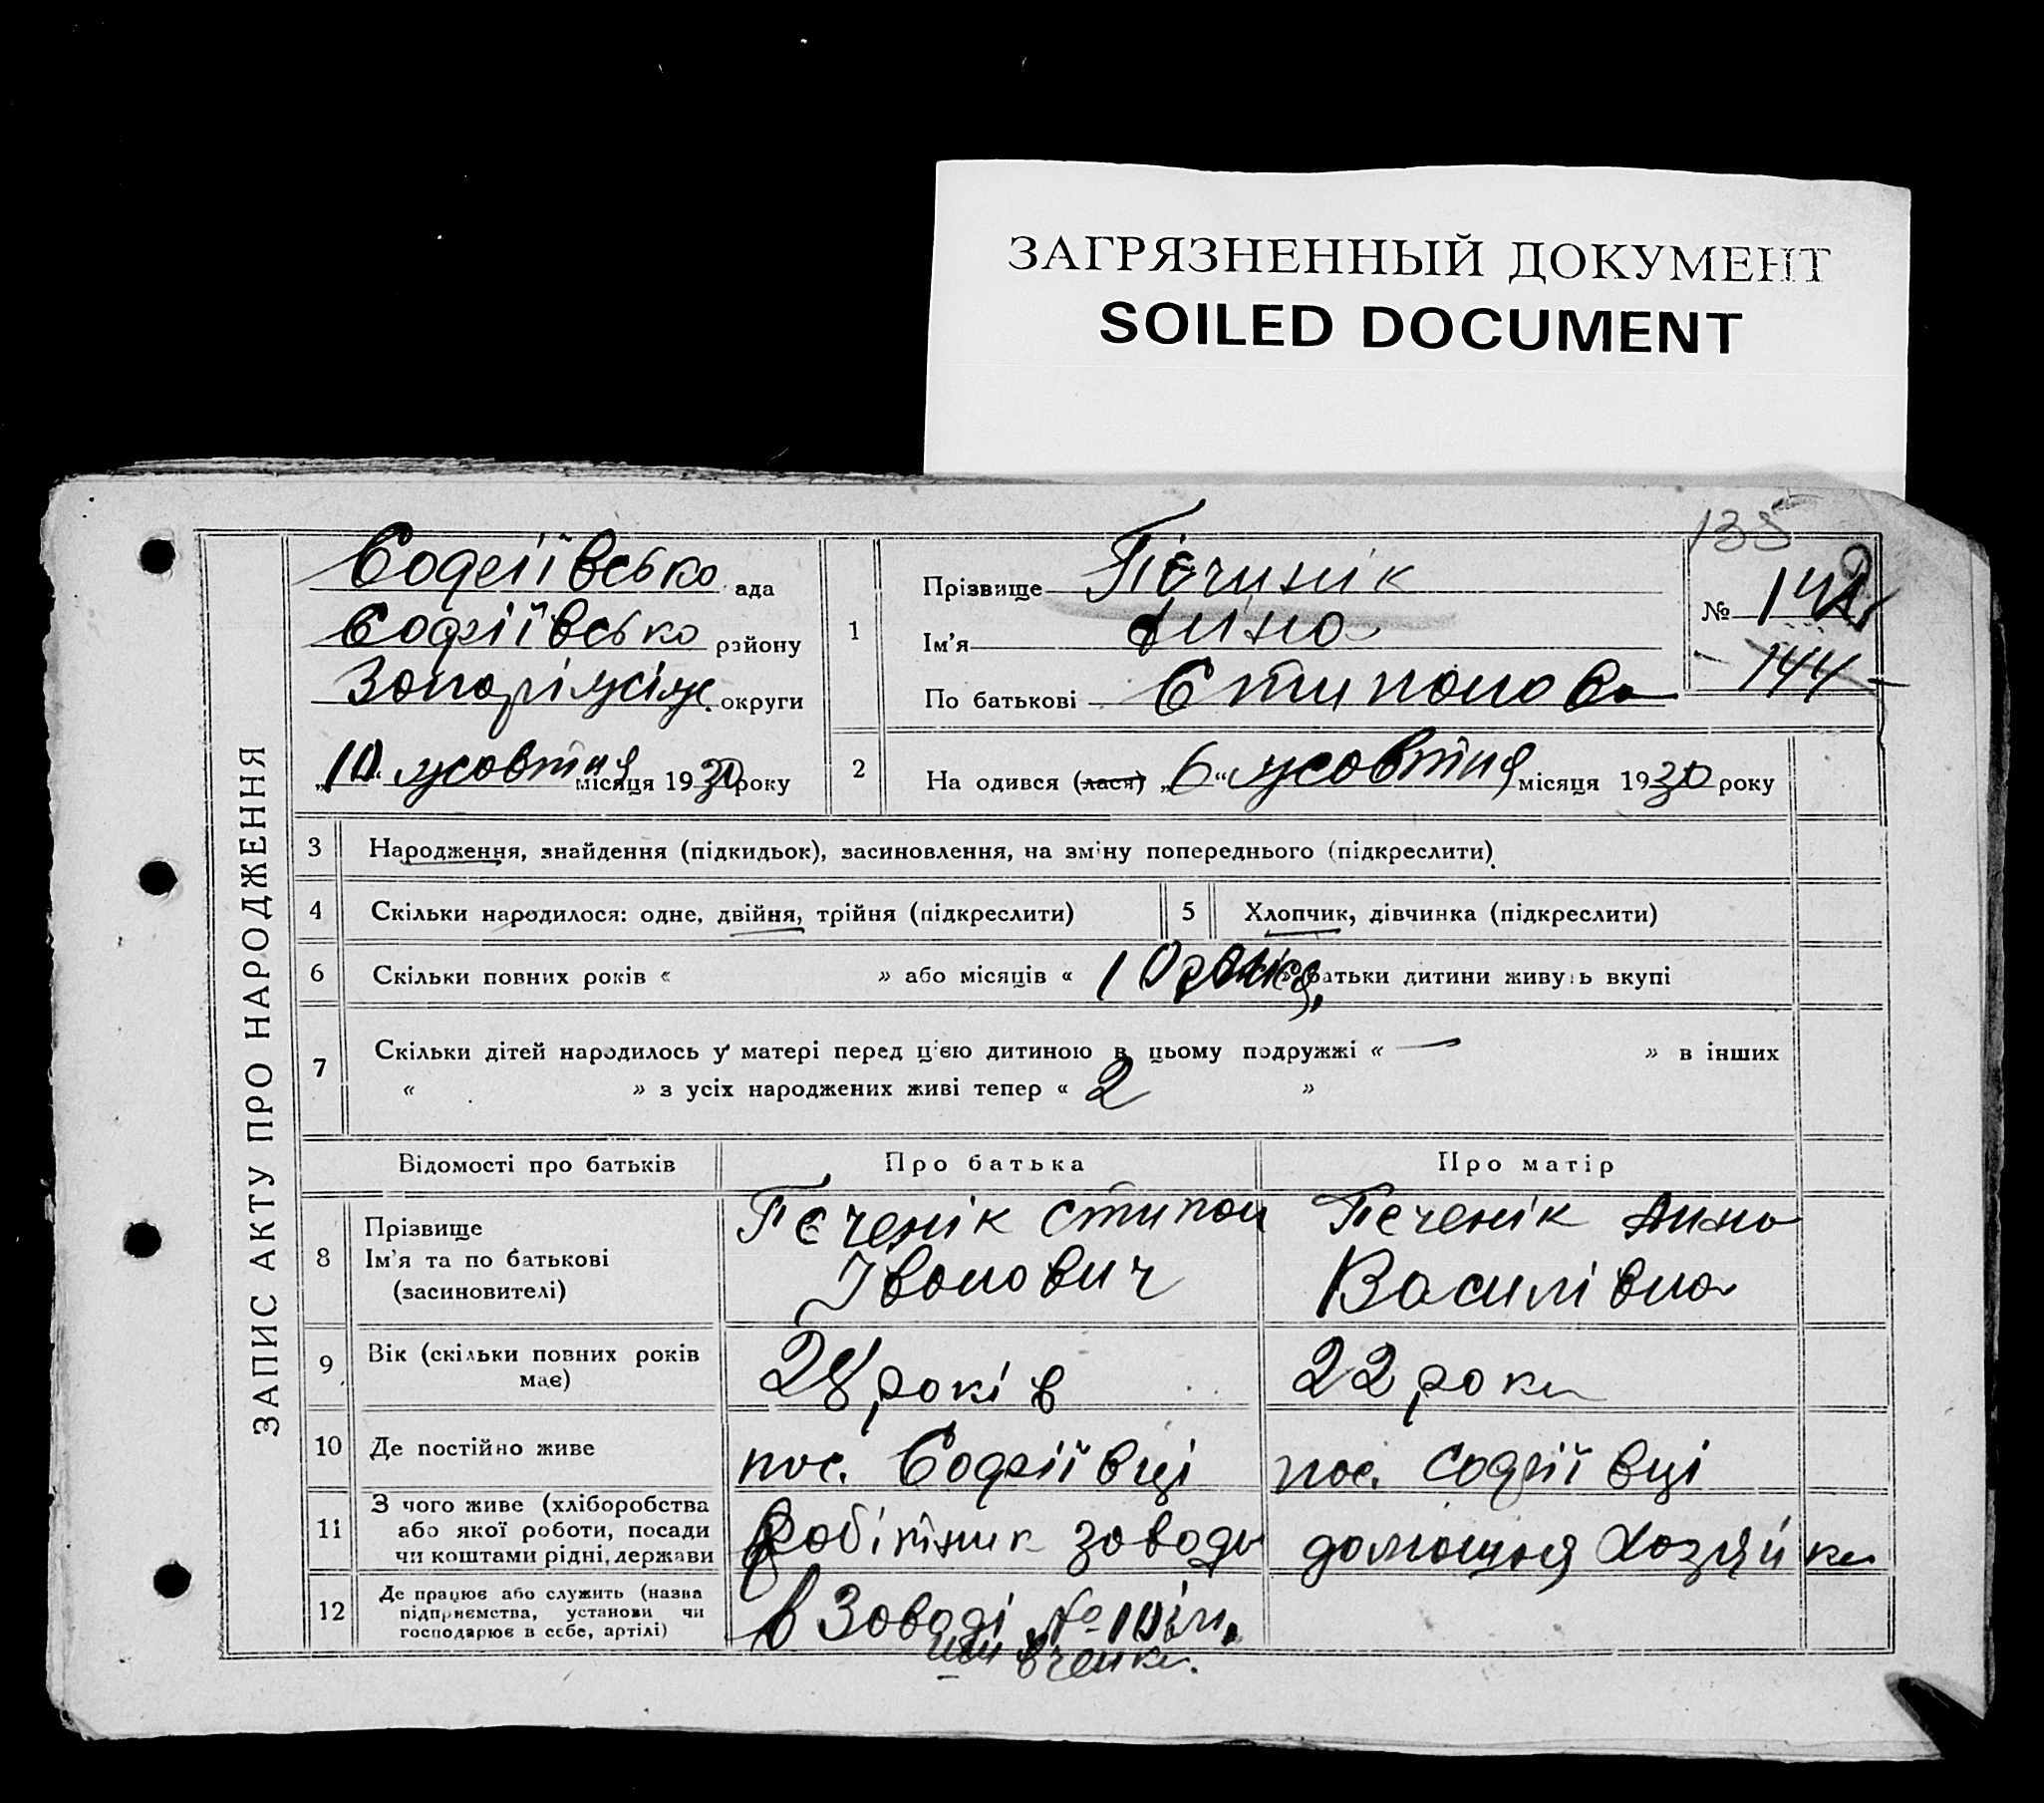 ЗАГРЯЗНЕННЫЙ ДОКУМЕНТ
SOILED DOCUMENT
135
ЗАПИС АКТУ ПРО НАРОДЖЕННЯ
Софіївсько ада
Софіївсько району
округи
„10“ жовтня місяця 1930 року
1
Прізвище Пєчинік
Ім'я
По батькові Стипонова
№ 142
144
2
На одився (лася) „6“ жовтня місяця 1930 року
3 Народження, знайдення (підкидьок), засиновлення, на зміну попереднього (підкреслити)
4 Скільки народилося: одне, двійня, трійня (підкреслити)
5 Хлопчик, дівчинка (підкреслити)
6 Скільки повних років « » або місяців « 1 батьки дитини живуть вкупі
7 Скільки дітей народилось у матері перед цією дитиною в цьому подружжі « — » в інших
« » з усіх народжених живі тепер « 2 »
Відомості про батьків Про батька Про матір
8 Прізвище
Ім'я та по батькові
(засиновителі)
Пєченік Стипон
Іванович
Пєченік
Василівна
9 Вік (скільки повних років
має)
28 років
22 роки
10 Де постійно живе
пос. Софіївці
пос. Софіївці
11 З чого живе (хліборобства
або якої роботи, посади
чи коштами рідні, держави
Робітник заводу
домошня хозяйка
12 Де працює або служить (назва
підприємства, установи чи
господарює в себе, артілі)
в Заводі № 10